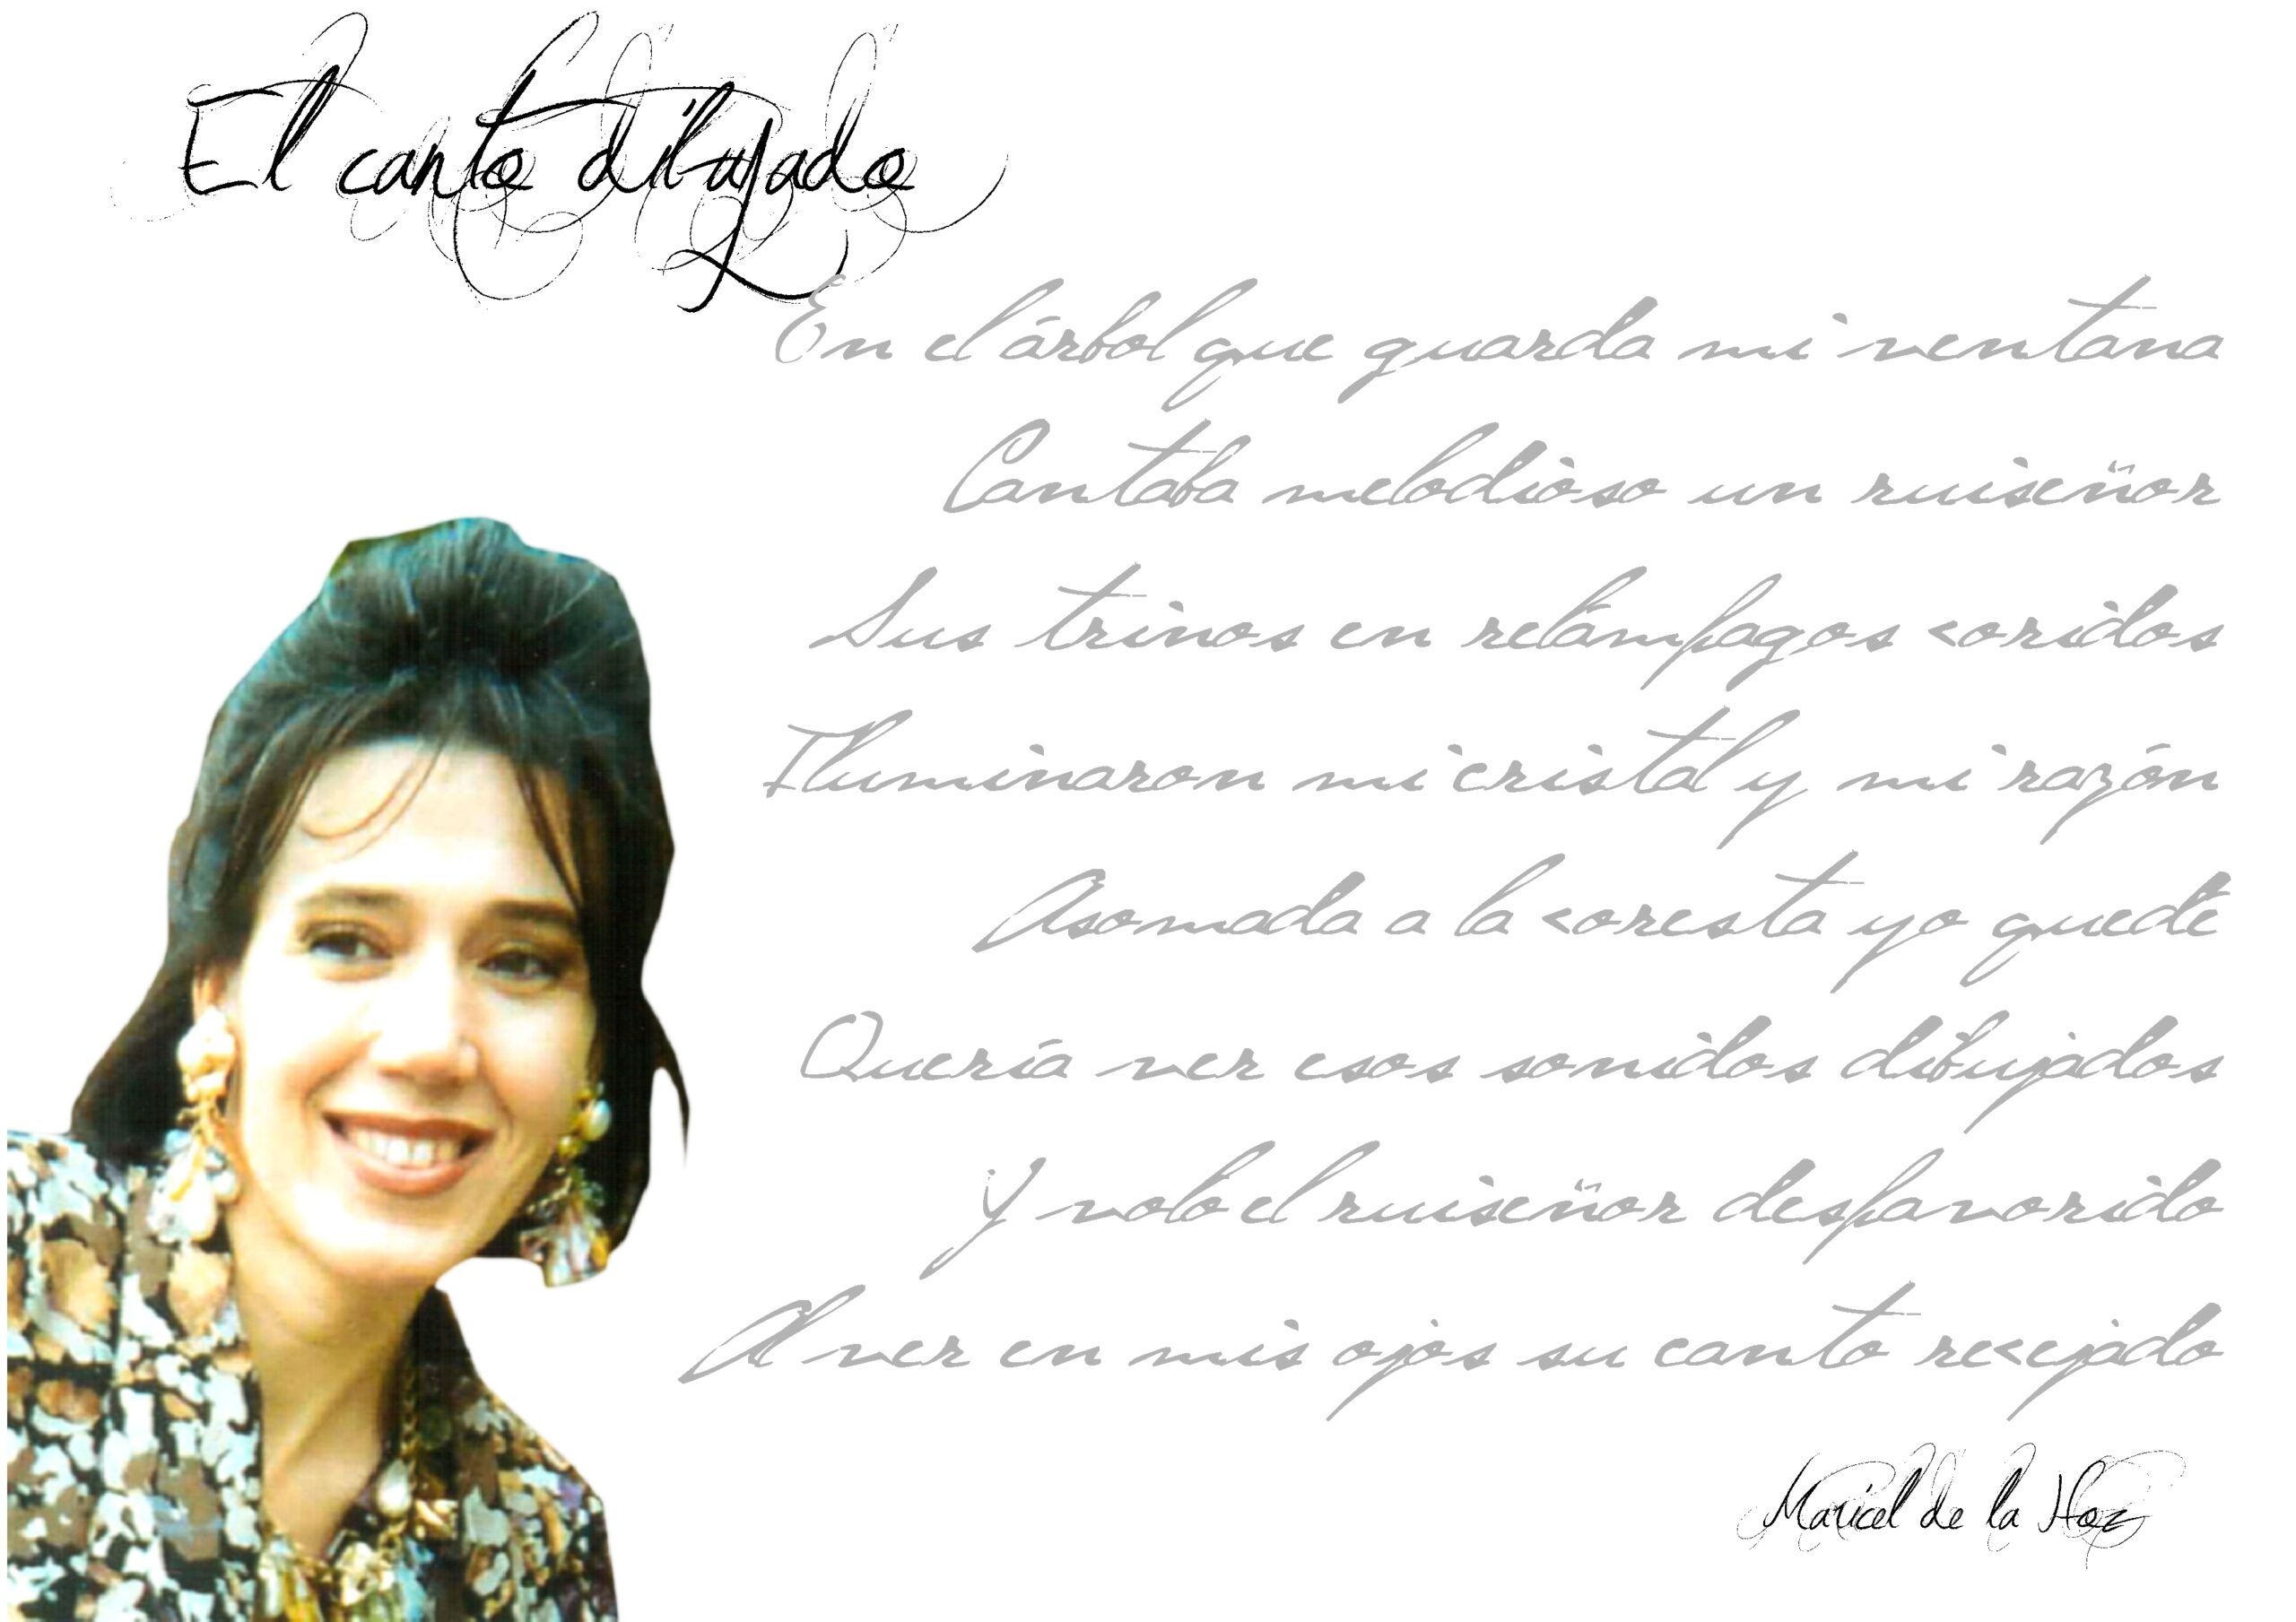 El canto dibujado
En el árbol que guarda mi ventana
Cantaba melodioso un ruiseñor
Sus trinos en relámpagos <oridos
Iluminaron mi cristal y mi razón
Asomada a la <oresta yo quedé
Quería ver esos sonidos dibujados
Y voló el ruiseñor despavorido
Al ver en mis ojos su canto re<ejado
Maricel de la Hoz